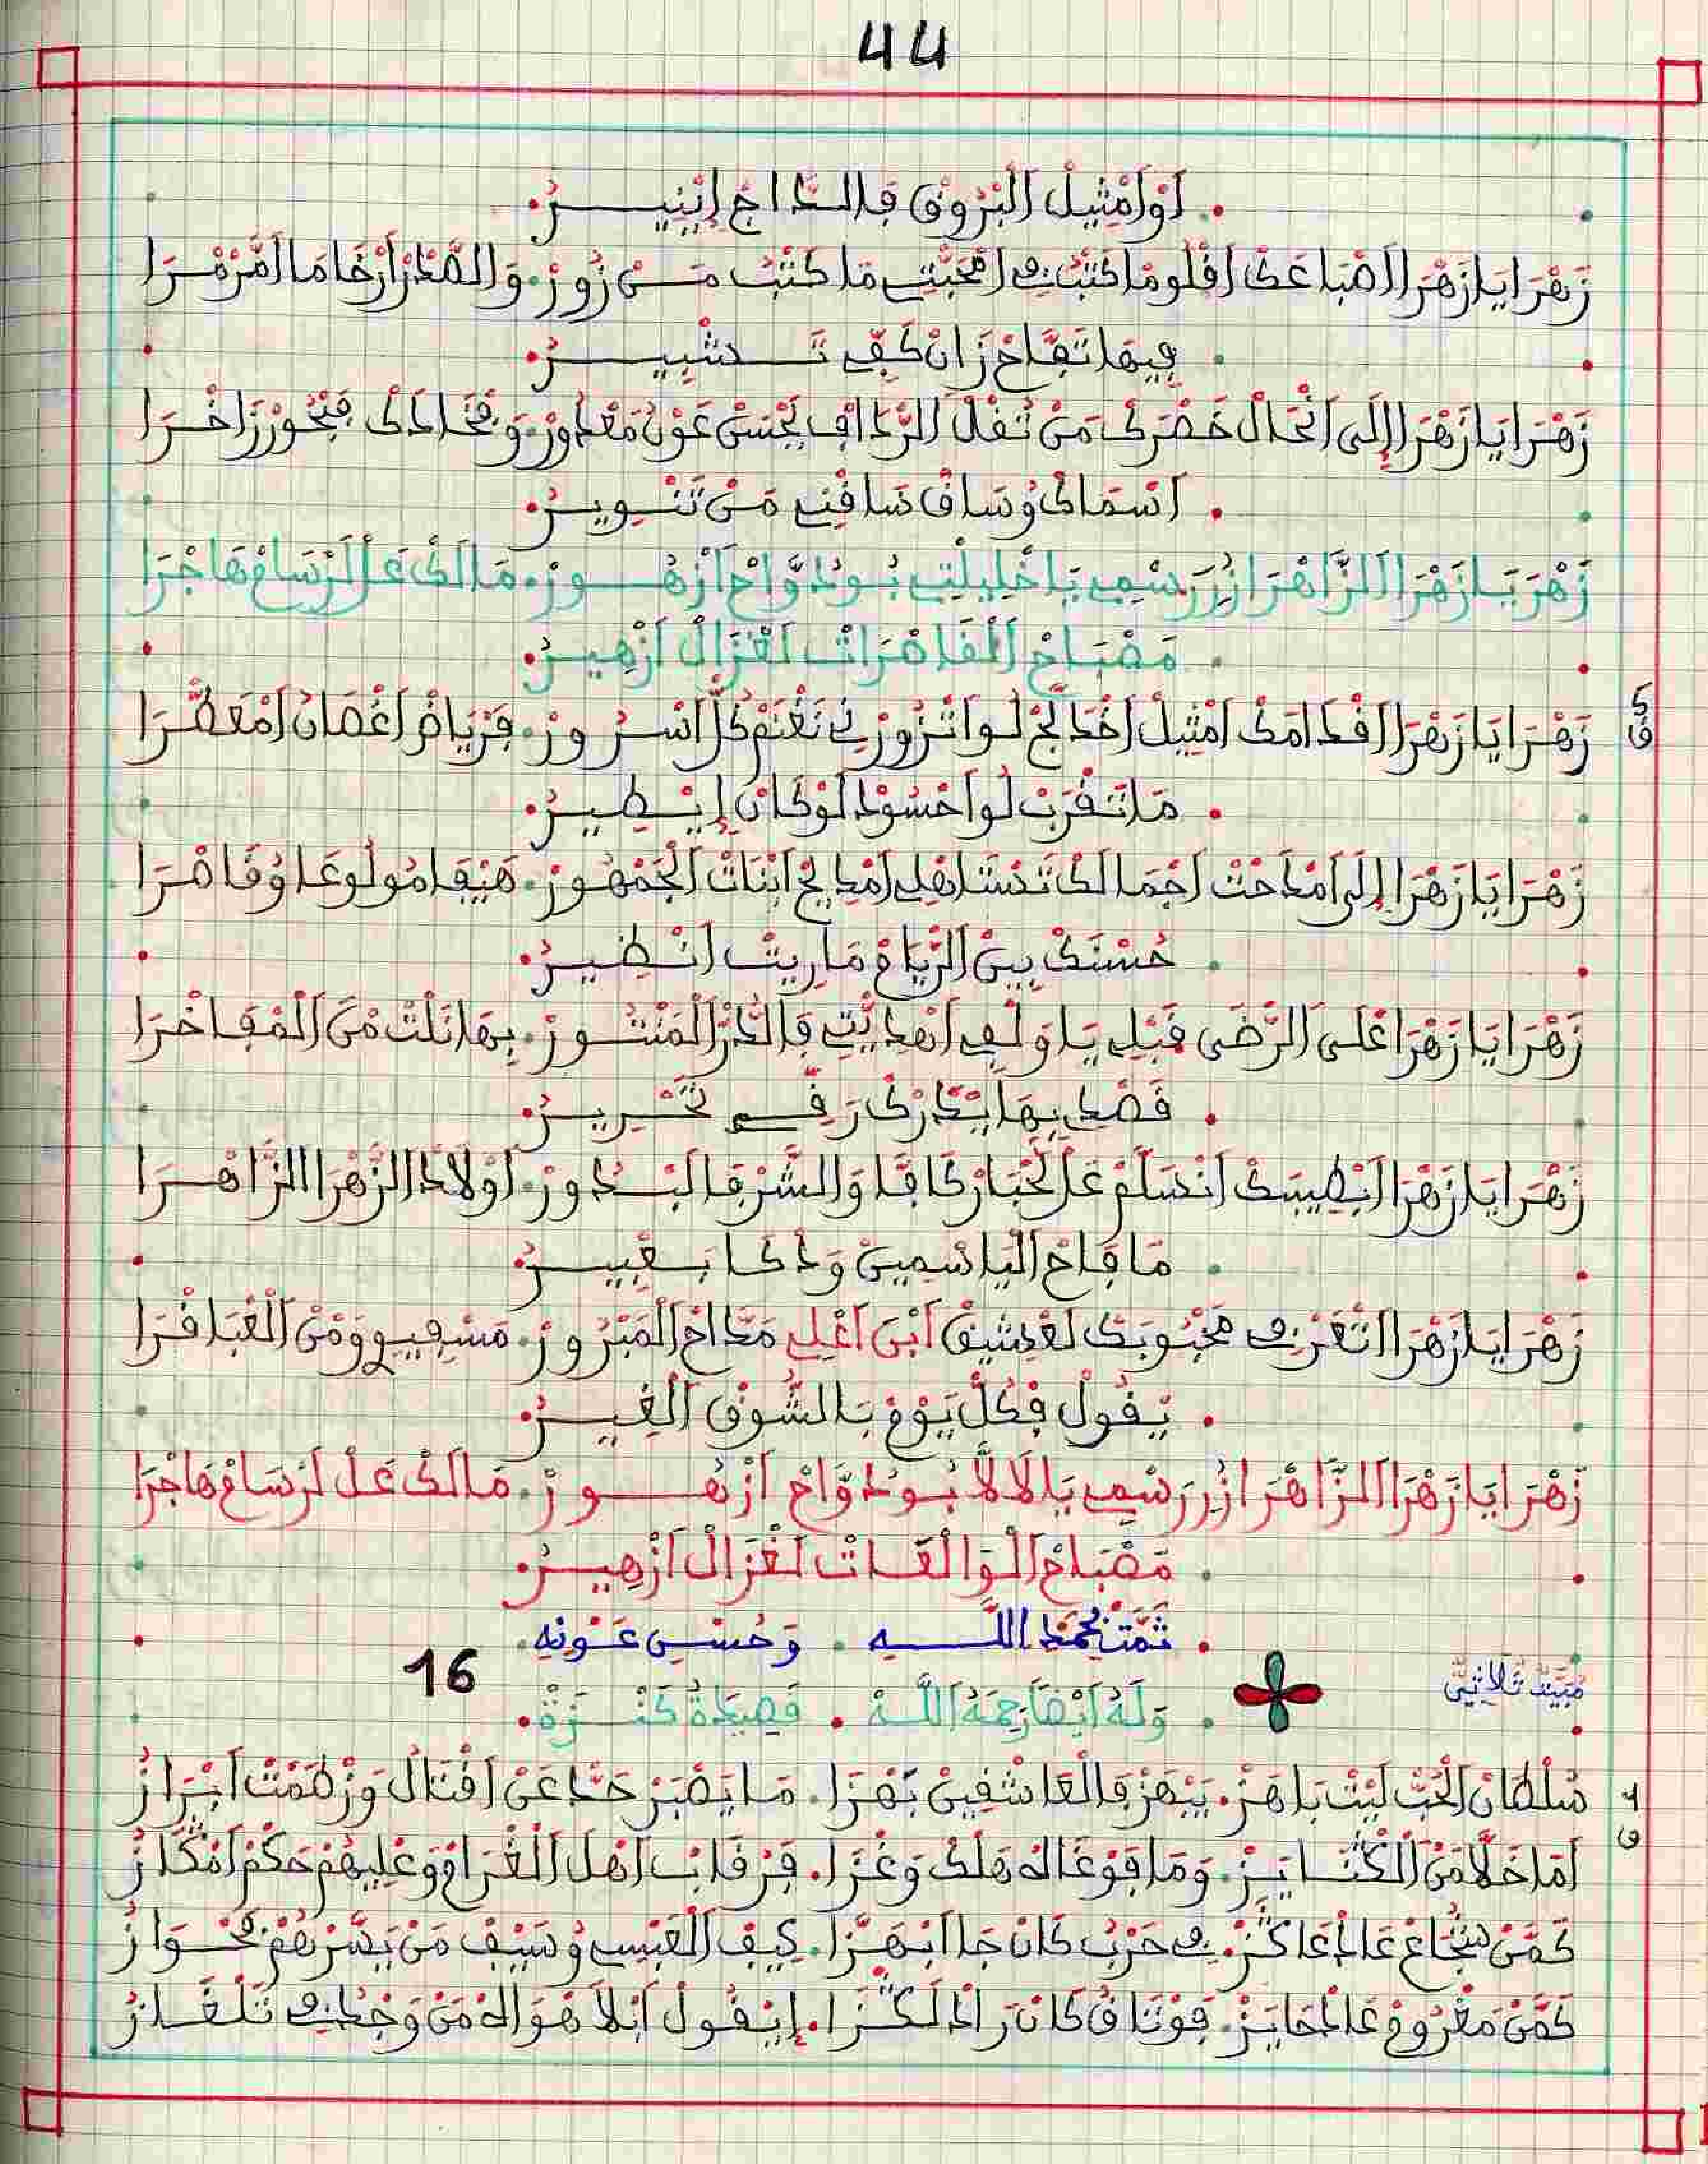 44
أَوْ أَمْثِيلْ الْبْرُوقْ فَالدَّاجْ إِيْنِيـــرْ
زَهْرَا يَا زَهْرَا اصْبَاعَكْ اقْلُومْ مَا كَتْبَتْ فِي امْحَبّْتِي مَا كَتْبَتْ مَنْ زُورْ. وَالصّْدَرْ ارْخَامَا امَّرْمْرَا
فِيهَا تَفَّاحْ زَانْ كَفّْ تَـــدْشْبِيـــرْ
زَهْرَا يَا زَهْرَا إِلَى انْحَالْ خَصْرَكْ مَنْ ثُقْلْ الرّْدَافْ يَحْسَنْ عَوْنُ مَعْدُورْ. وَفْخَادَكْ فَبْحُورْ زَاخْرَا
اسْمَاكْ وُسَاقْ سَاقْنِي مَنْ تَنْـــوِيرْ
زَهْرَ يَا زَهْرَا الزَّاهْرَا زُرْ رَسْمِي يَا خْلِيلْتِي بُودَوَّاحْ ازْهُـــورْ. مَالَكْ عَلْ لَرْسَامْ هَاجْرَا
مَصْبَاحْ الْقَاصْرَاتْ لَغْزَالْ ازْهِيرْ
5 ق
زَهْرَا يَا زَهْرَا اقْدَامَكْ امْثِيلْ اخْدَلَّجْ لُو اتْزُورْنِي نَغْنَمْ كُلّْ اسْرُورْ. فَرْيَاضْ اغْصَانُ امْعَطّْرَا
مَا تَقْرَبْ لُو احْسُودْ لَوْ كَانْ إِيْـــطِيرْ
زَهْرَا يَا زَهْرَا إِلَى امْدَحْتْ اجْمَالَكْ تَدْسْتَاهْلِي امْدِيحْ ابْنَاتْ الْجَمْهُورْ. هَيْفَا مُولُوعَا وُقَاصْرَا
حُسْنَكْ بِينْ الرّْيَامْ مَا رِيتْ انْـــظِيرْ
زَهْرَا يَا زَهْرَا عْلَى الرّْضَى قَبْلِي يَا وَلْفِي اهْدِيّْتِي فَالدُّرّْ الْمَنْثُورْ. بِهَا نَلْتْ مْنْ الْمْفَاخْرَا
قَصْدِي بِهَا يَتّْدَرْكْ رَقْـــمِي تَحْـــرِيرْ
زَهْرَا يَا زَهْرَا ابْطِيبَكْ انْسَلَّمْ عَلْ لَحْبَارْ كَافَّا وَالشُّرْفَا لَبْـــدُورْ. اوْلَادْ الزَّهْرَا الزَّاهْـــرَا
مَا فَاحْ الْيَاسْمِينْ وَذْكَا بَـــعْبِيـــرْ
زَهْرَا يَا زَهْرَا اتْعَرْفِي مَحْبُوبَكْ لَعْشِيقْ ابْنْ اعْلِي مَدَّاحْ الْمَبْرُورْ. مَسْفِيوِي وَمْنْ الْغْبَافْرَا
يْقُولْ فْكُلّْ يَوْمْ بَالشُّوقْ الْغِيـــرْ
زَهْرَا يَا زَهْرَا الزَّاهْرَا زُرْ رَسْمِي يَا لَالَّا بُودَوَّاحْ ازْهُـــورْ. مَالَكْ عَلْ لَرْسَامْ هَاجْرَا
مَصْبَاحْ الْوَالْعَاتْ لَغْزَالْ ازْهِيـــرْ
تَمَّتْ بِحَمْدِ اللَّـــهِ. وَحُسْنِ عَوْنِهِ
16
مْبَيَّتْ ثُلَاثِيّ
وَلَهُ أَيْضًا رَحِمَهُ اللَّهْ. قَصِيدَةُ كَنْـــزَةْ
1 ق
سُلْطَانْ الْحُبّْ لَيْتْ بَاهَزْ. يَبْهَزْ فَالْعَاشْقِينْ بَهْزَا. مَا يَصْبَرْ حَدّْ عَنْ اقْتَالُ وَزْطَمْتْ ابْرَازُ
امَا خَلَّا مَنْ الْكْنَايَزْ. وَمَا قَوْغَالُه هَلْكْ وَغْزَا. فَرْقَابْ اهْلْ الْغْرَامْ وَعْلِيهُمْ حَكْمْ امْكَّازُ
كَمَّنْ شُجَاعْ عَادْ عَاكَزْ. فِي حَرْبُ كَانْ جَا ابْهَزَّا. كِيفْ الْعَبْسِي وُسَيْفْ مَنْ يَسَّرْهُمْ بَحْـــوَازُ
كَمَّنْ مَغْرُومْ عَادْ حَايَزْ. قَوْتَاقُ كَانْ رَادْ لَكْـــزَا. إِيْقُولْ ابْلَا هْوَالْهْ مَنْ وَجْدُ فِي تَلْغَازُ